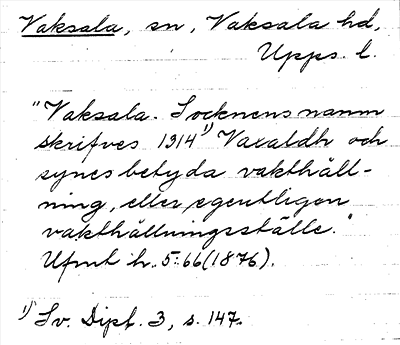 Vaksala, sn, Vaksala hd,
Upps. l.
"Vaksala. Socknens namn
skrifves 1314¹⁾ Vaxaldh och
synes betyda vakthåll-
ning, eller egentligen
vakthållningsställe."
Ufmt h. 5:66 (1876).
¹⁾ Sv. Dipl. 3, s. 147.